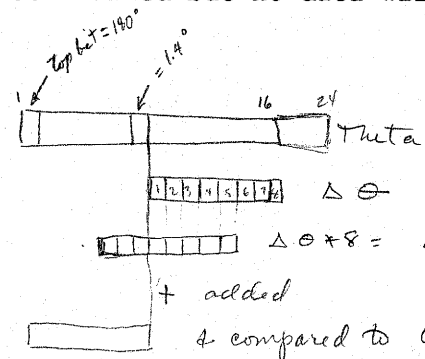 Top bit = 180°
= 1.4°
1 16 24
Theta
1 2 3 4 5 6 7 8 Δ Θ
Δ Θ * 8 =
+ added
& compared to